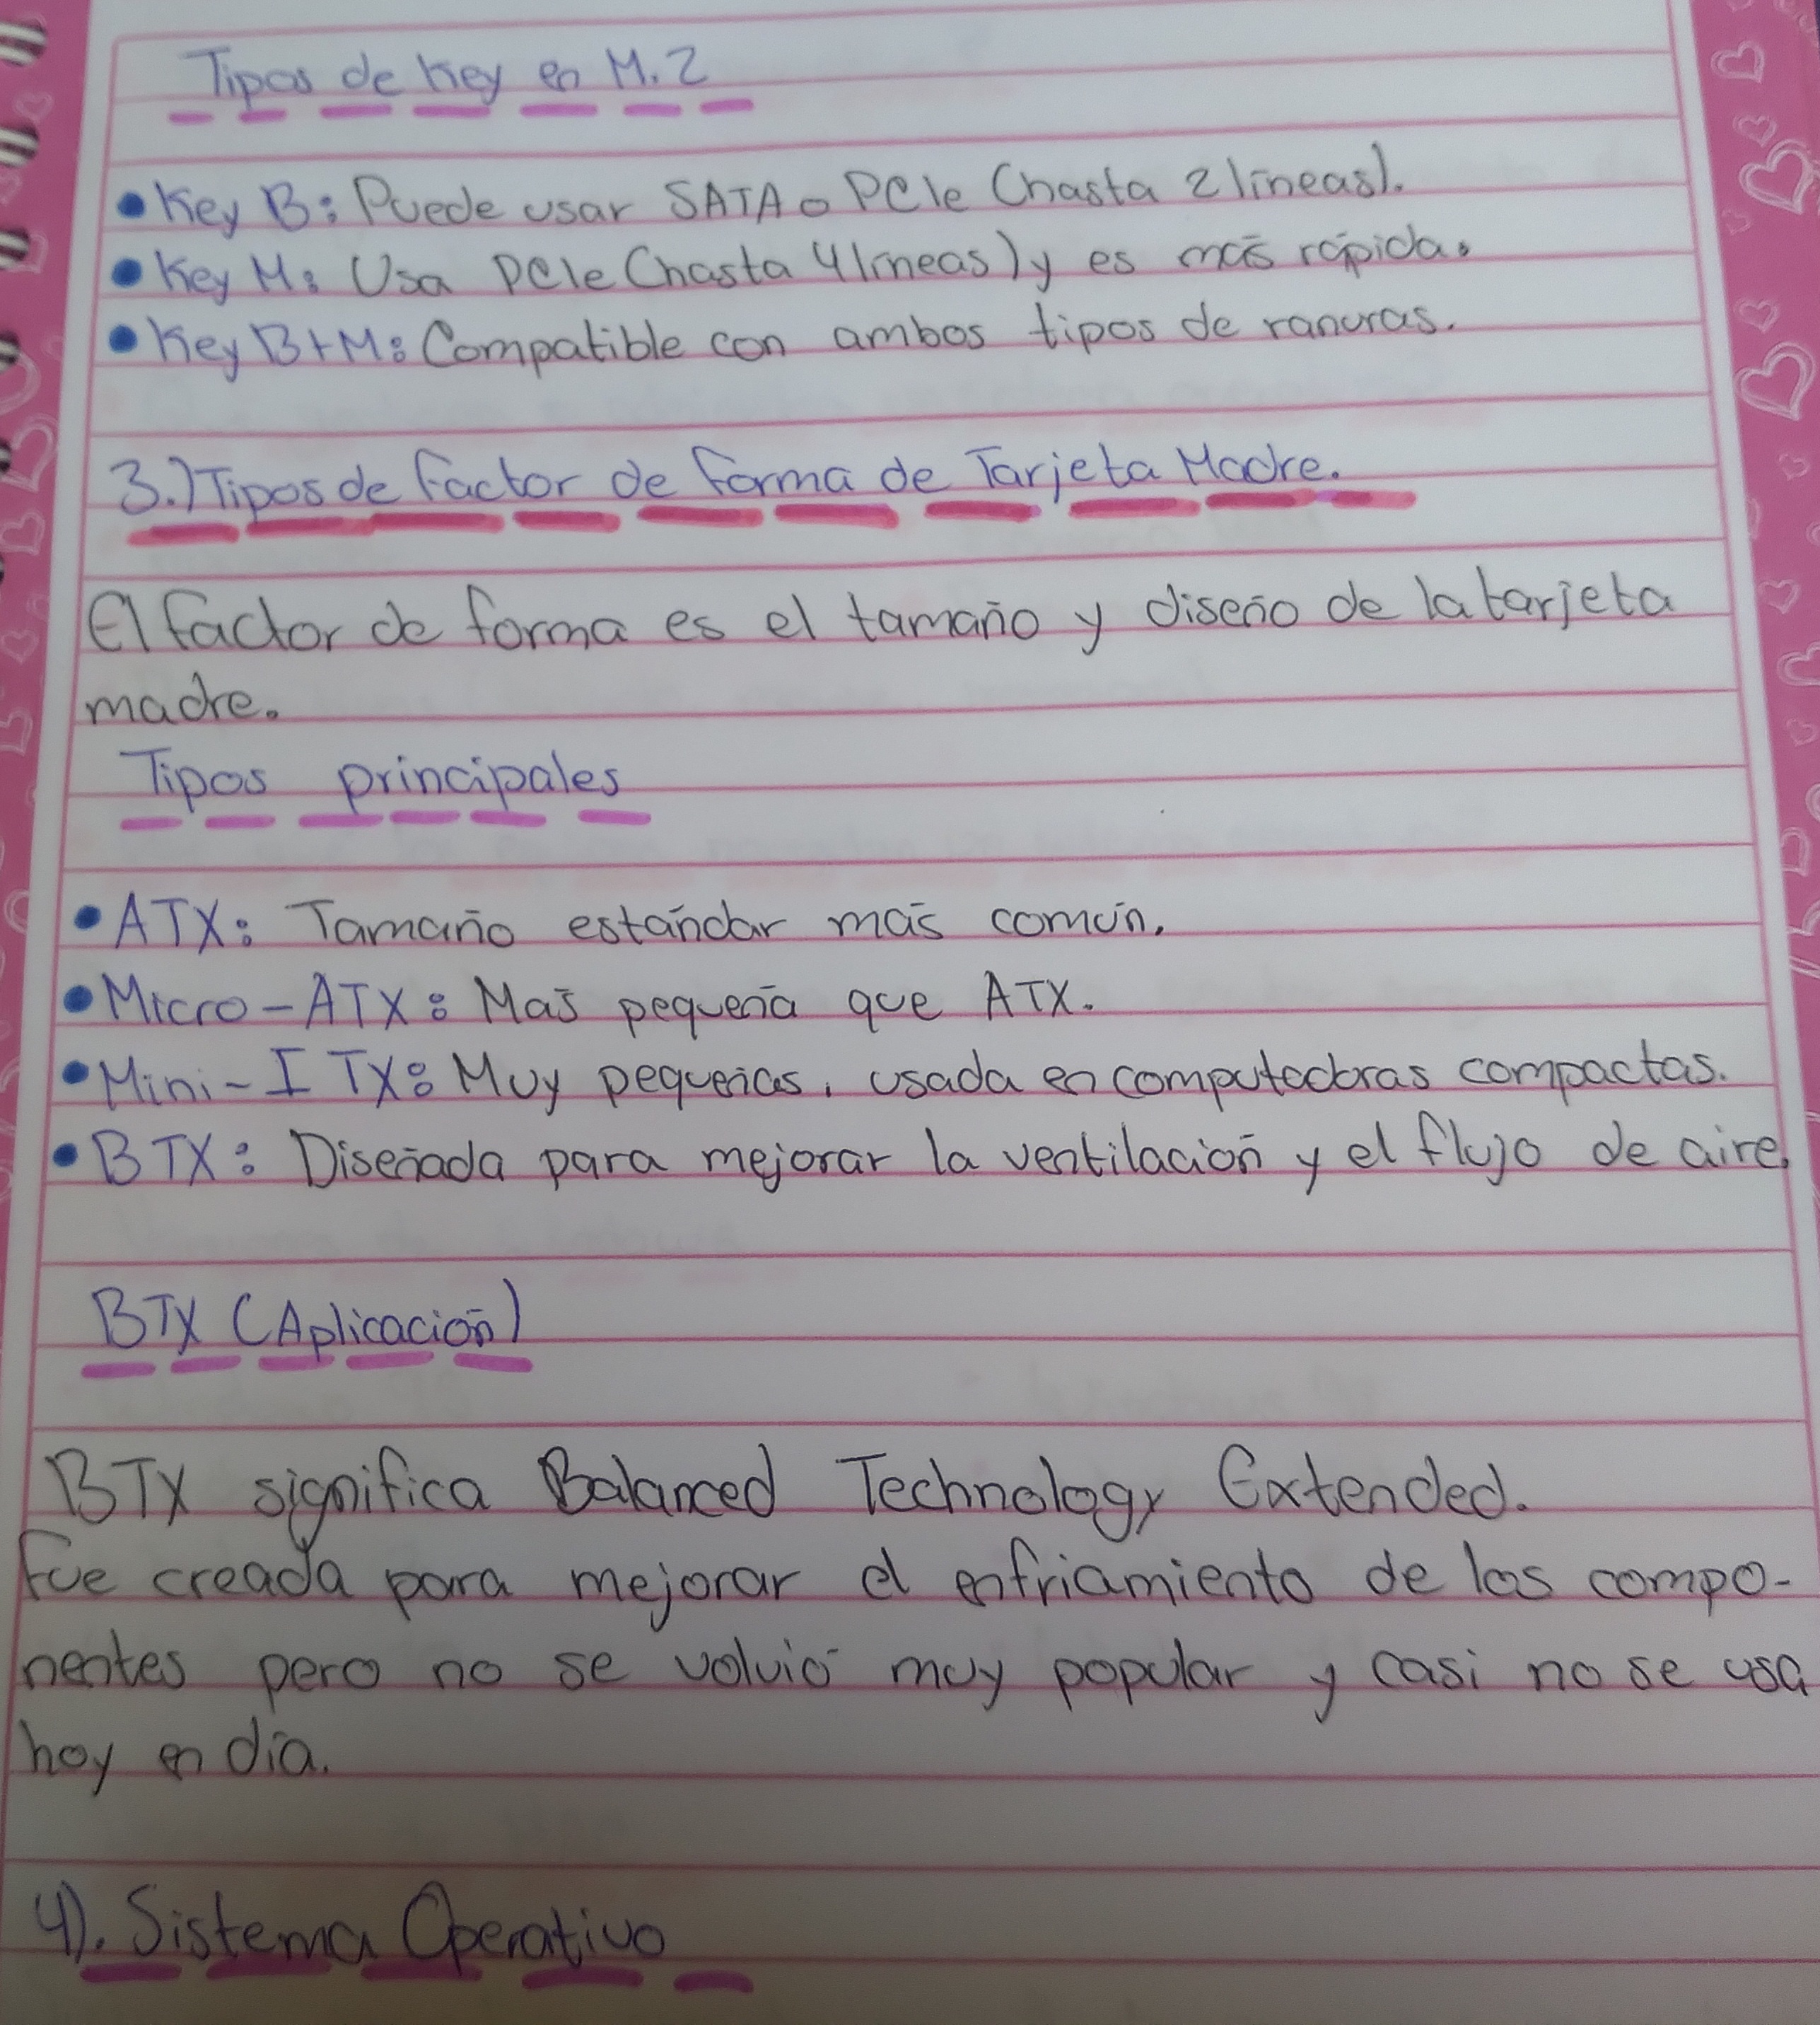 Tipos de Key en M.2
• Key B: Puede usar SATA o PCIe (hasta 2 líneas).
• Key M: Usa PCIe (hasta 4 líneas) y es más rápida.
• Key B+M: Compatible con ambos tipos de ranuras.
3.) Tipos de factor de forma de Tarjeta Madre.
El factor de forma es el tamaño y diseño de la tarjeta
madre.
Tipos principales
• ATX: Tamaño estándar más común.
• Micro-ATX: Más pequeña que ATX.
• Mini-ITX: Muy pequeñas, usada en computadoras compactas.
• BTX: Diseñada para mejorar la ventilación y el flujo de aire.
BTX (Aplicación)
BTX significa Balanced Technology Extended.
Fue creada para mejorar el enfriamiento de los compo-
nentes pero no se volvió muy popular y casi no se usa
hoy en día.
4). Sistema Operativo